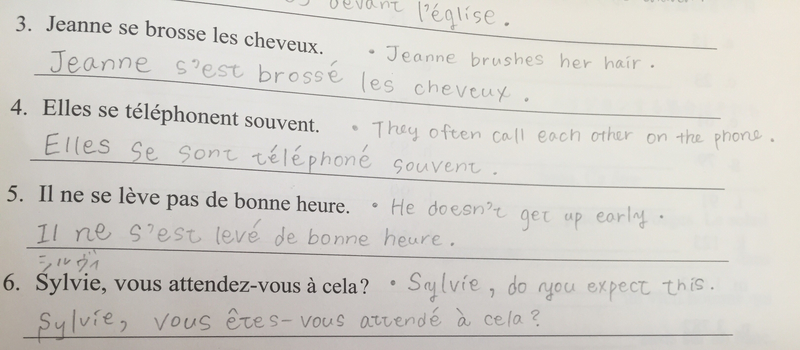 devant l'église.
3. Jeanne se brosse les cheveux. • Jeanne brushes her hair.
Jeanne s'est brossé les cheveux.
4. Elles se téléphonent souvent. • They often call each other on the phone.
Elles se sont téléphoné souvent.
5. Il ne se lève pas de bonne heure. • He doesn't get up early.
Il ne s'est levé de bonne heure.
シルヴィ
6. Sylvie, vous attendez-vous à cela? • Sylvie, do you expect this.
Sylvie, vous êtes-vous attendé à cela?